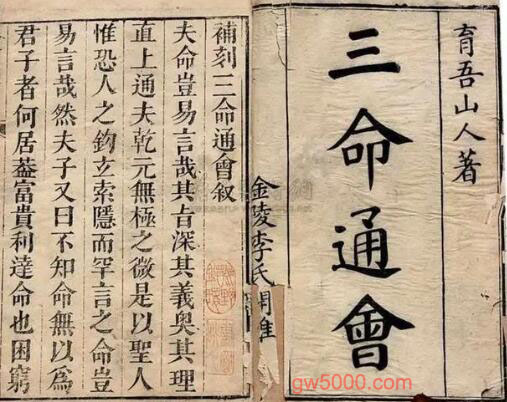 育吾山人著
三命通會
金陵李氏
補刻三命通會叙
夫命豈易言哉其旨深其義奧其理
直上通夫乾元無極之微是以聖人
惟恐人之鈎玄索隱而罕言之命豈
易言哉然夫子又曰不知命無以爲
君子者何居葢富貴利達命也困窮
gw5000.com